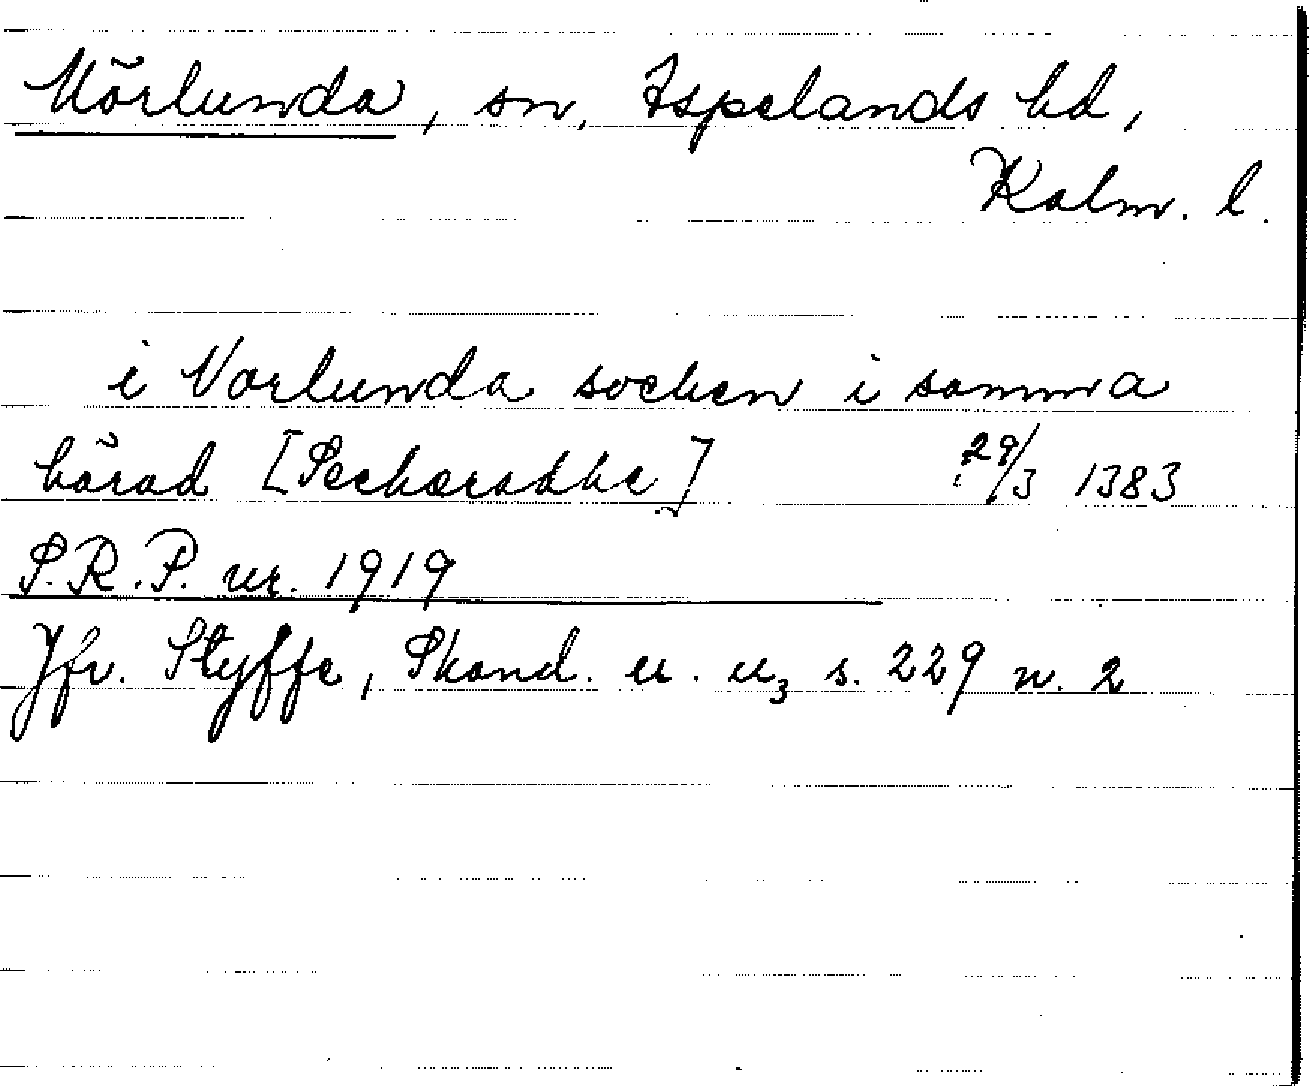 Mörlunda, sn, Aspelands hd,
Kalm. l.
i Norlunda socken i samma
härad [Seckæradhe] 29/3 1383
S.R.P. nr. 1919
Jfr. Styffe, Skand. u. u3 s. 229 n. 2